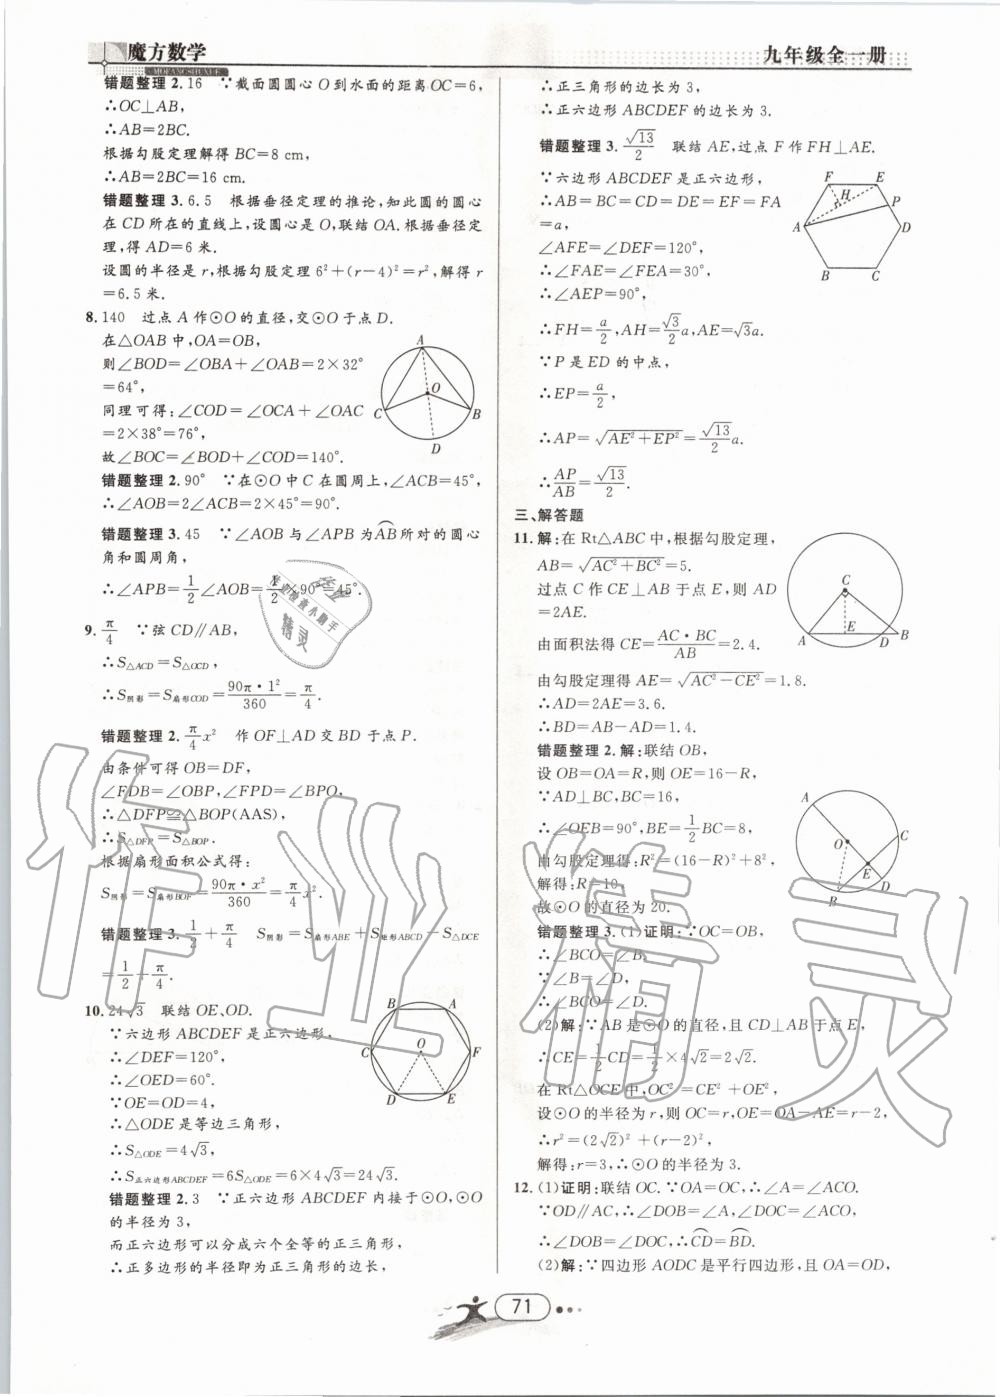 魔方数学
MOFANGSHUXUE
九年级全一册
错题整理 2. 16 ∵截面圆圆心 O 到水面的距离 OC=6,
∴OC⊥AB,
∴AB=2BC.
根据勾股定理解得 BC=8 cm,
∴AB=2BC=16 cm.
错题整理 3. 6.5 根据垂径定理的推论,知此圆的圆心
在 CD 所在的直线上,设圆心是 O,联结 OA.根据垂径定
理,得 AD=6 米.
设圆的半径是 r,根据勾股定理 6²+(r-4)²=r²,解得 r
=6.5 米.
8. 140 过点 A 作⊙O 的直径,交⊙O 于点 D.
在△OAB 中,OA=OB,
则∠BOD=∠OBA+∠OAB=2×32°
=64°,
同理可得:∠COD=∠OCA+∠OAC
=2×38°=76°,
故∠BOC=∠BOD+∠COD=140°.
A
O
C
B
D
错题整理 2. 90° ∵在⊙O 中 C 在圆周上,∠ACB=45°,
∴∠AOB=2∠ACB=2×45°=90°.
错题整理 3. 45 ∵∠AOB 与∠APB 为⌒AB所对的圆心
角和圆周角,
∴∠APB=1/2∠AOB=1/2×90°=45°.
9. π/4 ∵弦 CD∥AB,
∴S△ACD=S△OCD,
∴S阴影=S扇形COD=90π·1²/360=π/4.
错题整理 2. π/4x² 作 OF⊥AD 交 BD 于点 P.
由条件可得 OB=DF,
∠FDB=∠OBP,∠FPD=∠BPO,
∴△DFP≌△BOP(AAS),
∴S△DFP=S△BOP.
根据扇形面积公式得:
S阴影=S扇形BOF=90π·x²/360=π/4x².
错题整理 3. 1/2+π/4 S阴影=S扇形ABE+S矩形ABCD-S△DCE
=1/2+π/4.
10. 24√3 联结 OE、OD.
∵六边形 ABCDEF 是正六边形,
∴∠DEF=120°,
∴∠OED=60°.
∵OE=OD=4,
∴△ODE 是等边三角形,
∴S△ODE=4√3,
∴S正六边形ABCDEF=6S△ODE=6×4√3=24√3.
B A
O
C F
D E
错题整理 2. 3 ∵正六边形 ABCDEF 内接于⊙O,⊙O
的半径为 3,
而正六边形可以分成六个全等的正三角形,
∴正多边形的半径即为正三角形的边长,
∴正三角形的边长为 3,
∴正六边形 ABCDEF 的边长为 3.
错题整理 3. √13/2 联结 AE,过点 F 作 FH⊥AE.
∵六边形 ABCDEF 是正六边形,
∴AB=BC=CD=DE=EF=FA
=a,
∠AFE=∠DEF=120°,
∴∠FAE=∠FEA=30°,
∴∠AEP=90°,
∴FH=a/2,AH=√3/2a,AE=√3a.
∵P 是 ED 的中点,
∴EP=a/2,
∴AP=√AE²+EP²=√13/2a.
∴AP/AB=√13/2.
F E
H
P
A D
B C
三、解答题
11. 解:在 Rt△ABC 中,根据勾股定理,
AB=√AC²+BC²=5.
过点 C 作 CE⊥AB 于点 E,则 AD
=2AE.
由面积法得 CE=AC·BC/AB=2.4.
由勾股定理得 AE=√AC²-CE²=1.8.
∴AD=2AE=3.6.
∴BD=AB-AD=1.4.
C
A E D B
错题整理 2. 解:联结 OB,
设 OB=OA=R,则 OE=16-R,
∵AD⊥BC,BC=16,
∴∠OEB=90°,BE=1/2BC=8,
由勾股定理得:R²=(16-R)²+8²,
解得:R=10,
故⊙O 的直径为 20.
A
O
C
E
B
D
错题整理 3. (1)证明:∵OC=OB,
∴∠BCO=∠B.
∵∠B=∠D,
∴∠BCO=∠D.
(2)解:∵AB 是⊙O 的直径,且 CD⊥AB 于点 E,
∴CE=1/2CD=1/2×4√2=2√2.
在 Rt△OCE 中,OC²=CE²+OE²,
设⊙O 的半径为 r,则 OC=r,OE=OA-AE=r-2,
∴r²=(2√2)²+(r-2)²,
解得:r=3,∴⊙O 的半径为 3.
12. (1)证明:联结 OC.∵OA=OC,∴∠A=∠ACO.
∵OD∥AC,∴∠DOB=∠A,∠DOC=∠ACO,
∴∠DOB=∠DOC,∴⌒CD=⌒BD.
(2)解:∵四边形 AODC 是平行四边形,且 OA=OD,
71
作业精灵